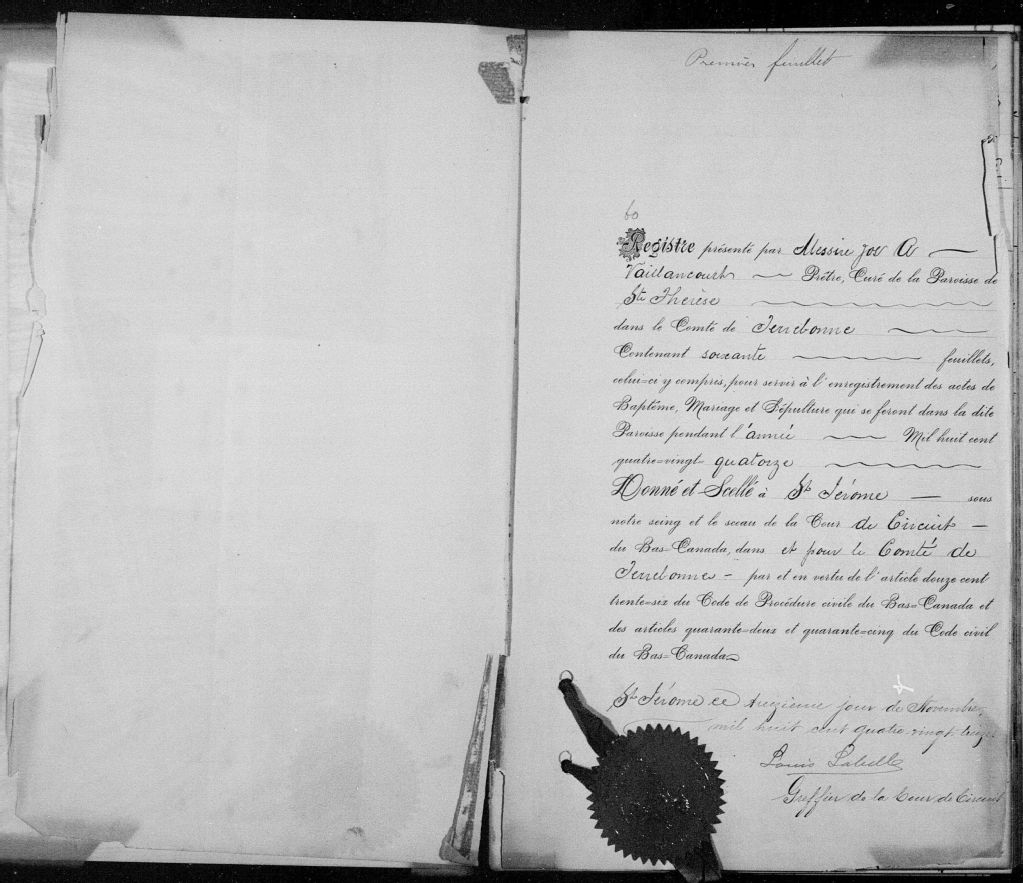 Premier feuillet
60
Registre présenté par Messire Jos A
Vaillancourt Prêtre, Curé de la Paroisse de
Ste Thérèse
dans le Comté de Terrebonne
Contenant soixante feuillets,
celui=ci y compris, pour servir à l'enregistrement des actes de
Baptême, Mariage et Sépulture qui se feront dans la dite
Paroisse pendant l'année Mil huit cent
quatre=vingt= quatorze
Donné et Scellé à St Jérome sous
notre seing et le sceau de la Cour de Circuit
du Bas=Canada, dans et pour le Comté de
Terrebonne - par et en vertu de l'article douze cent
trente=six du Code de Procédure civile du Bas=Canada et
des articles quarante=deux et quarante=cinq du Code civil
du Bas=Canada
St Jérome ce treizieme jour de Novembre
mil huit cent quatre-vingt-treize.
Louis Labelle
Greffier de la Cour de Circuit